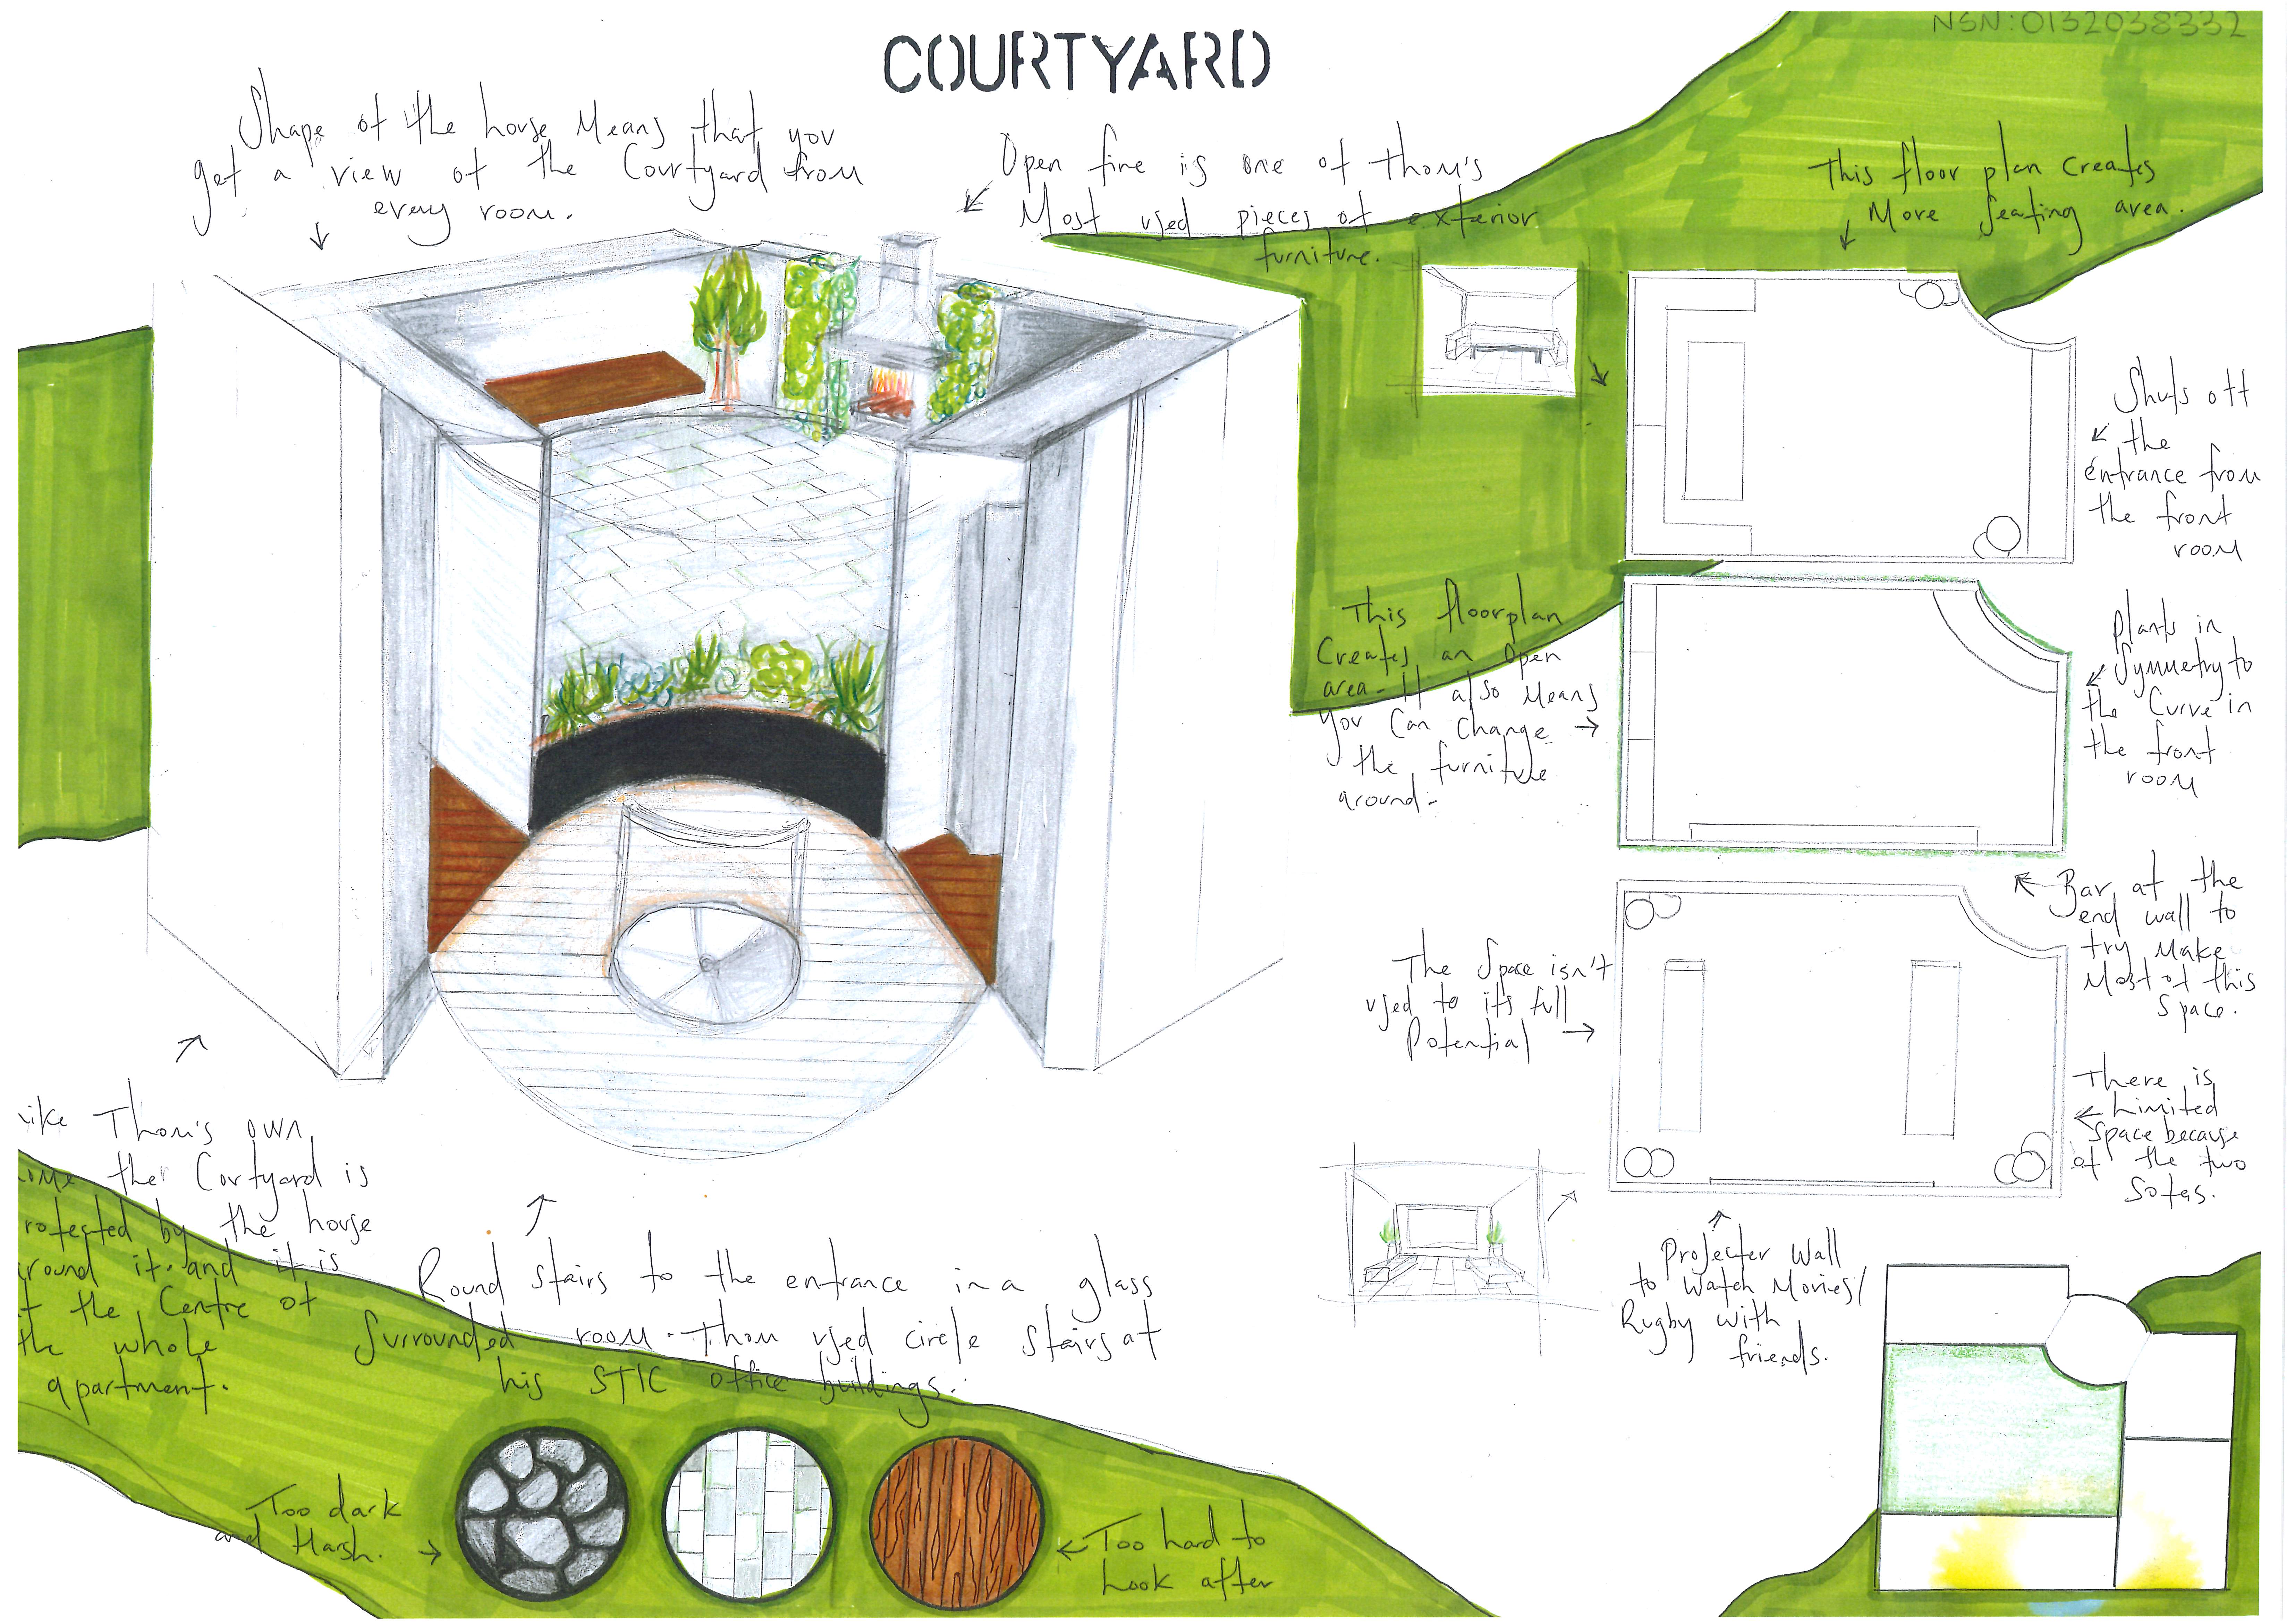 COURTYARD
NSN:0132038332
Shape of the house Means that you
get a view of the Courtyard from
every room.
Open fire is one of thom's
Most used pieces of exterior
furniture.
This floor plan creates
More Seating area.
Shuts off
the
entrance from
the front
room
This floorplan
Creates an Open
area. It also Means
you Can Change
the furniture
around.
Plants in
Symmetry to
the Curve in
the front
room
Bar at the
end wall to
try Make
Most of this
Space.
The Space isn't
used to its full
Potential
There is
Limited
Space because
of the two
Sofas.
Projecter Wall
to Watch Movies/
Rugby with
friends.
ike Thom's own
ome the Cortyard is
rotected by the house
round it. and it is
t the Centre of
the whole
apartment.
Round Stairs to the entrance in a glass
Surrounded room. Thom used circle Stairs at
his STIC office buildings.
Too dark
and Harsh.
Too hard to
Look after